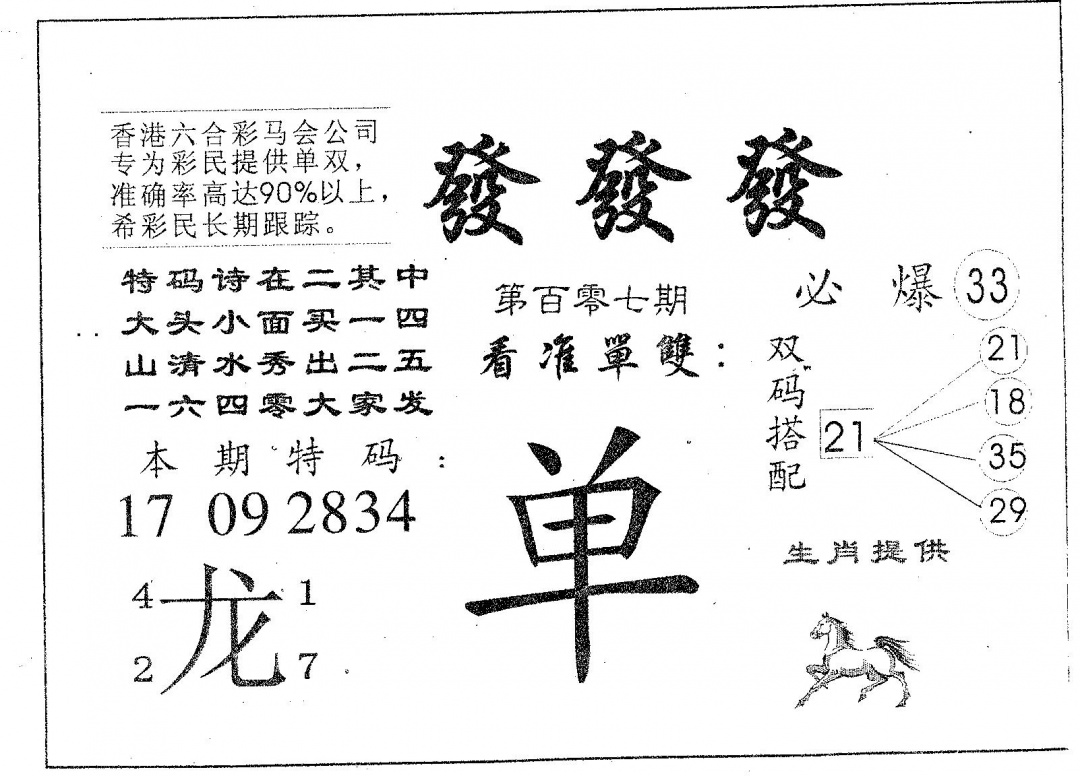 香港六合彩马会公司
专为彩民提供单双，
准确率高达90%以上，
希彩民长期跟踪。
發 發 發
特码诗在二其中
大头小面买一四
山清水秀出二五
一六四零大家发
本期特码：
17 09 2834
4 龙 1
2 7
第百零七期
看准單雙：
单
必爆 33
双码搭配 21
21
18
35
29
生肖提供